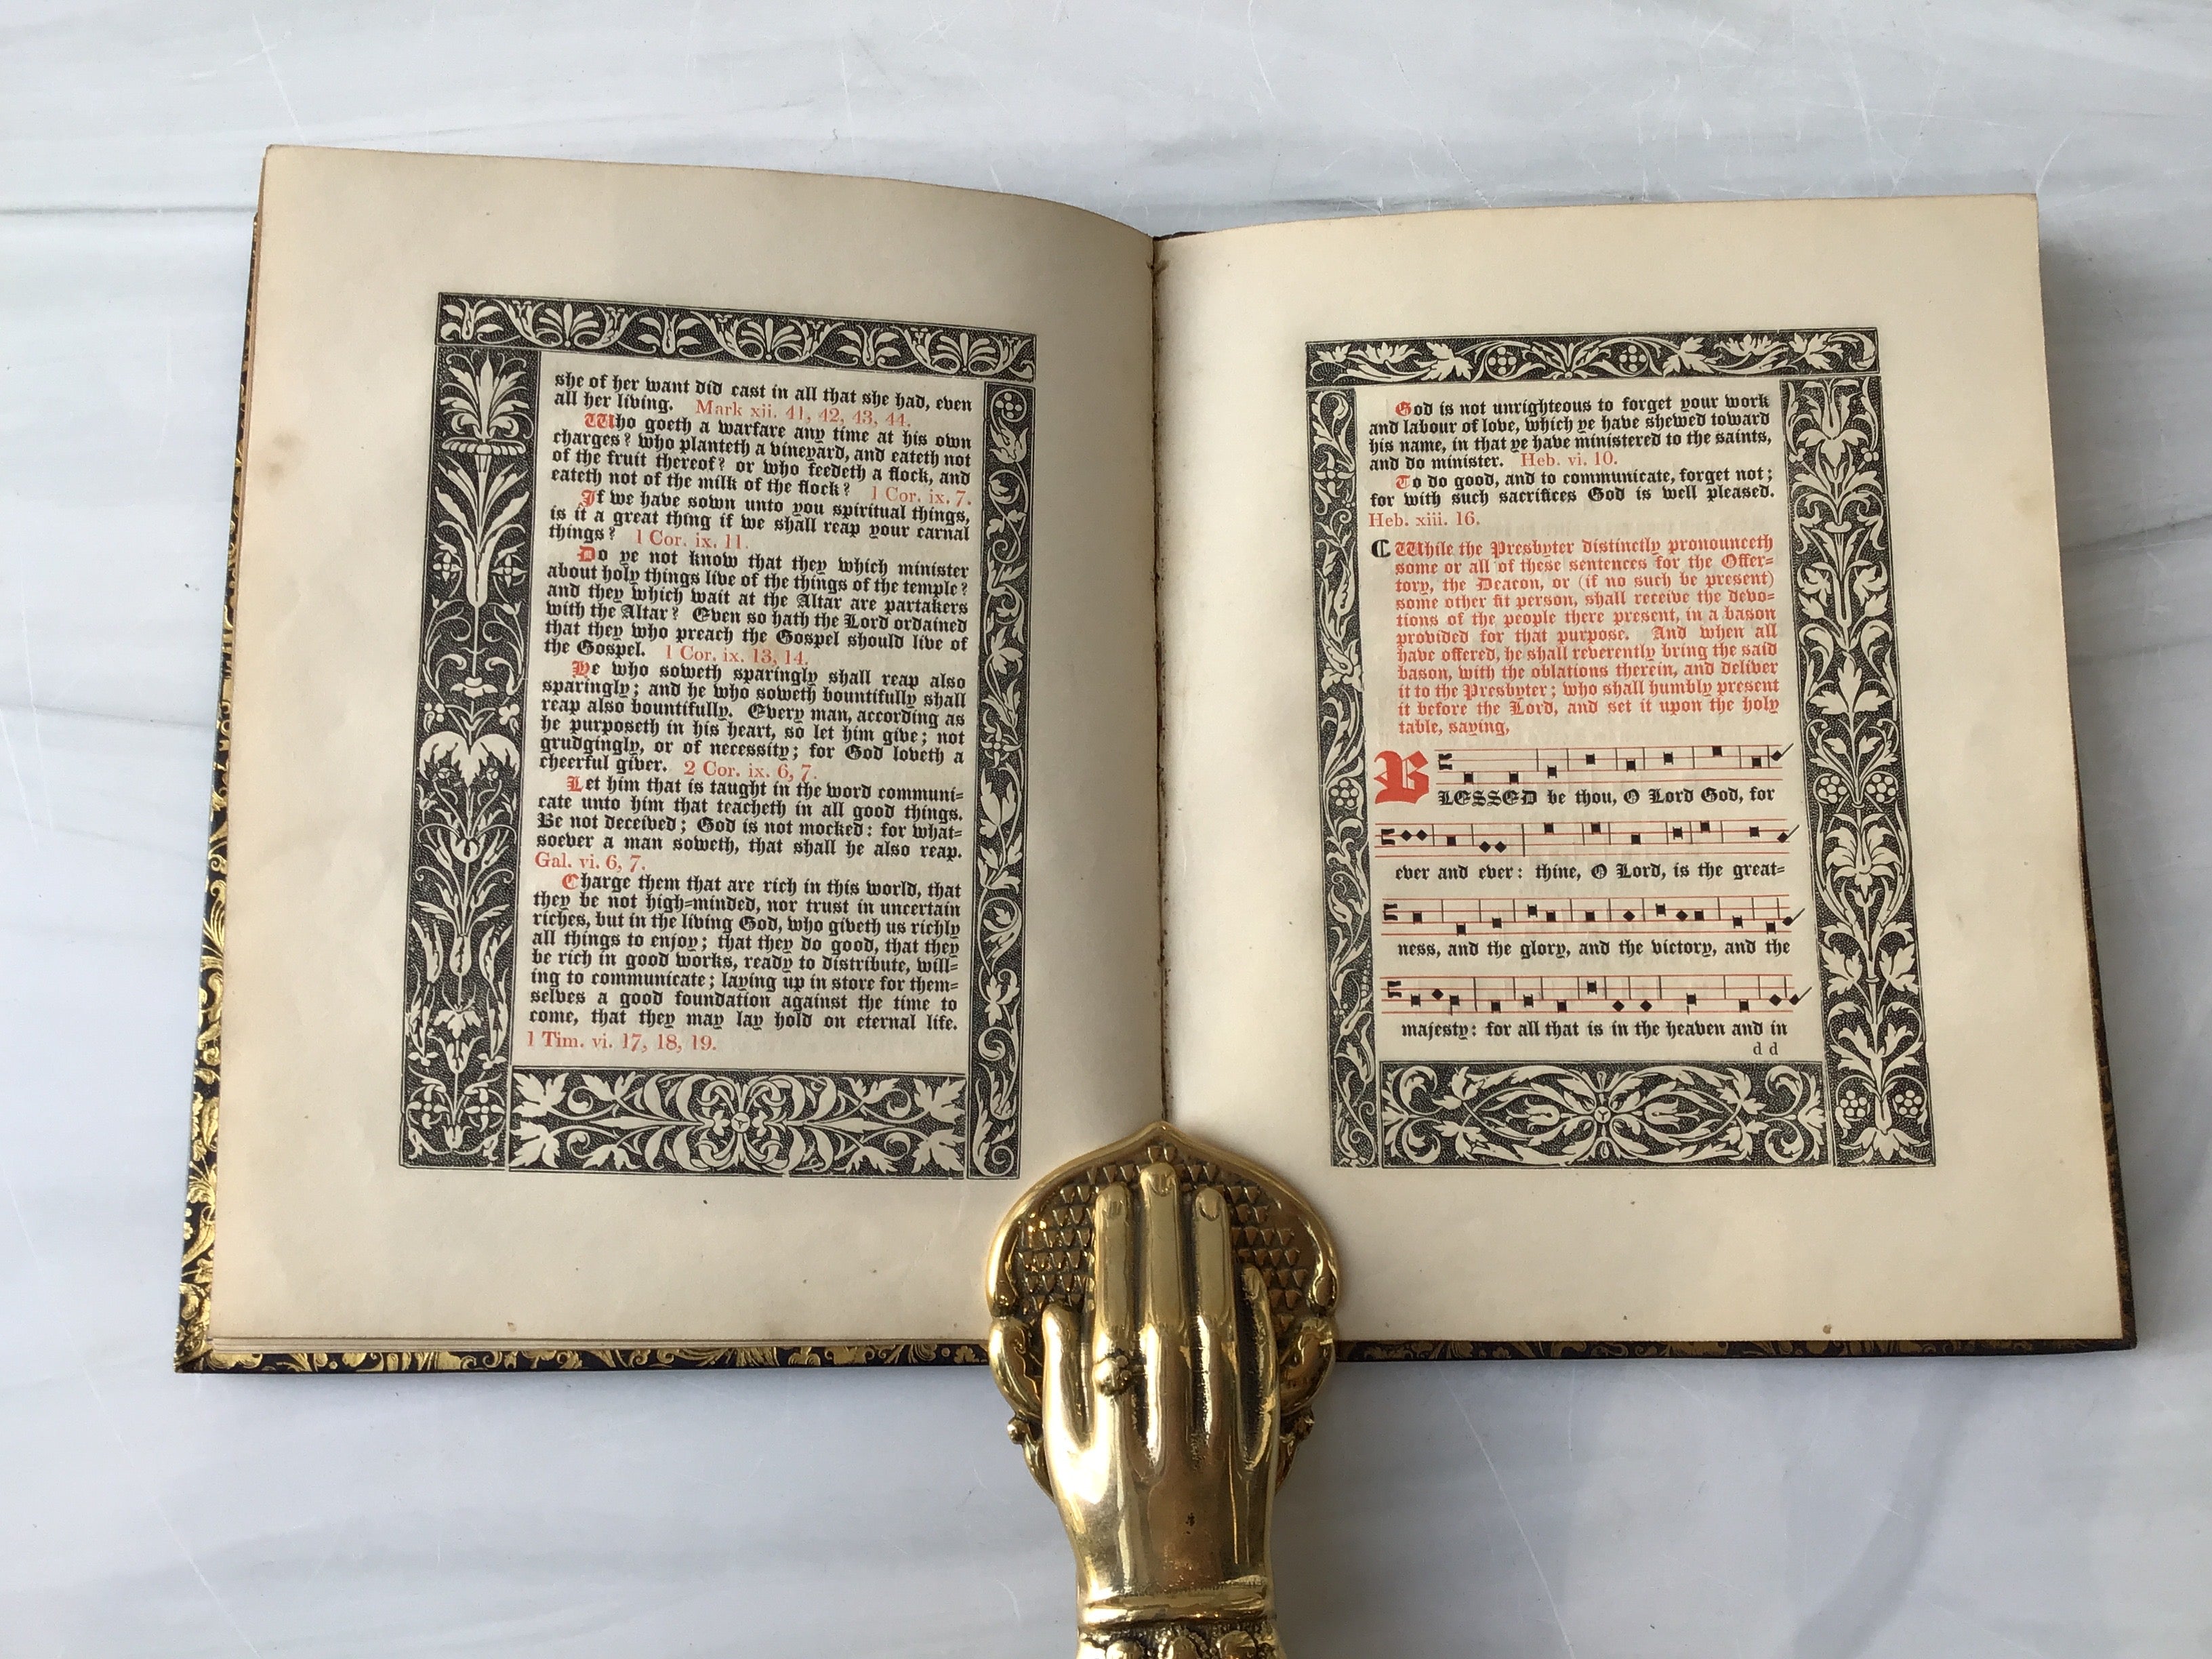 she of her want did cast in all that she had, even
all her living. Mark xii. 41, 42, 43, 44.
Who goeth a warfare any time at his own
charges? who planteth a vineyard, and eateth not
of the fruit thereof? or who feedeth a flock, and
eateth not of the milk of the flock? 1 Cor. ix. 7.
If we have sown unto you spiritual things,
is it a great thing if we shall reap your carnal
things? 1 Cor. ix. 11.
Do ye not know that they which minister
about holy things live of the things of the temple?
and they which wait at the Altar are partakers
with the Altar? Even so hath the Lord ordained
that they who preach the Gospel should live of
the Gospel. 1 Cor. ix. 13, 14.
He who soweth sparingly shall reap also
sparingly; and he who soweth bountifully shall
reap also bountifully. Every man, according as
he purposeth in his heart, so let him give; not
grudgingly, or of necessity; for God loveth a
cheerful giver. 2 Cor. ix. 6, 7.
Let him that is taught in the word communi=
cate unto him that teacheth in all good things.
Be not deceived; God is not mocked: for what=
soever a man soweth, that shall he also reap.
Gal. vi. 6, 7.
Charge them that are rich in this world, that
they be not high=minded, nor trust in uncertain
riches, but in the living God, who giveth us richly
all things to enjoy; that they do good, that they
be rich in good works, ready to distribute, will=
ing to communicate; laying up in store for them=
selves a good foundation against the time to
come, that they may lay hold on eternal life.
1 Tim. vi. 17, 18, 19.
God is not unrighteous to forget your work
and labour of love, which ye have shewed toward
his name, in that ye have ministered to the saints,
and do minister. Heb. vi. 10.
To do good, and to communicate, forget not;
for with such sacrifices God is well pleased.
Heb. xiii. 16.
C While the Presbyter distinctly pronounceth
some or all of these sentences for the Offer=
tory, the Deacon, or (if no such be present)
some other fit person, shall receive the devo=
tions of the people there present, in a bason
provided for that purpose. And when all
have offered, he shall reverently bring the said
bason, with the oblations therein, and deliver
it to the Presbyter; who shall humbly present
it before the Lord, and set it upon the holy
table, saying,
BLESSED be thou, O Lord God, for
ever and ever: thine, O Lord, is the great=
ness, and the glory, and the victory, and the
majesty: for all that is in the heaven and in
d d